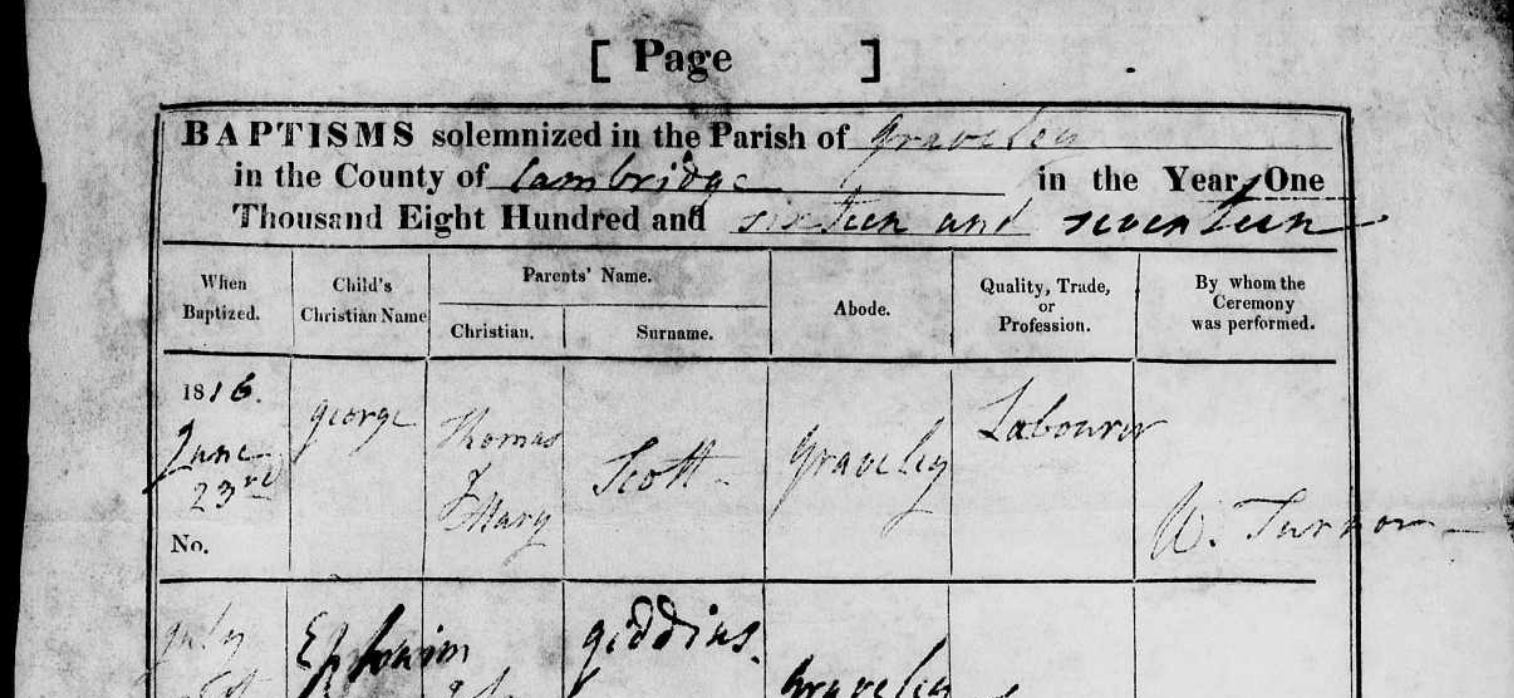 [ Page ]
BAPTISMS solemnized in the Parish of Graveley
in the County of Cambridge in the Year One
Thousand Eight Hundred and sixteen and seventeen
When Baptized.
Child's Christian Name
Parents' Name.
Christian.
Surname.
Abode.
Quality, Trade, or Profession.
By whom the Ceremony was performed.
1816.
June
23rd
No.
George
Thomas
& Mary
Scott
Graveley
Labourer
W. Turnor
July
Ephraim
Giddins.
Graveley